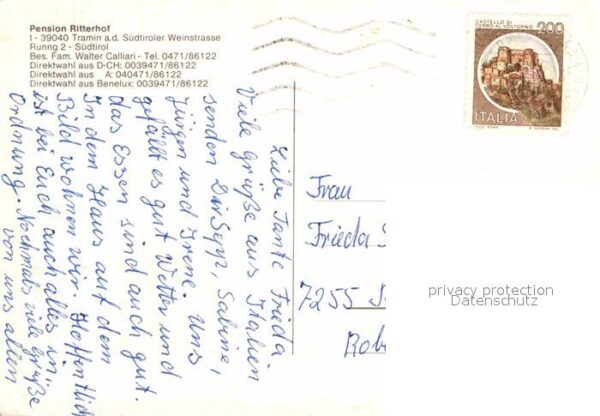 Pension Ritterhof
I - 39040 Tramin a.d. Südtiroler Weinstrasse
Rungg 2 - Südtirol
Bes. Fam. Walter Calliari - Tel. 0471/86122
Direktwahl aus D-CH: 0039471/86122
Direktwahl aus A: 040471/86122
Direktwahl aus Benelux: 0039471/86122
Liebe Tante Frieda
Viele Grüße aus Italien
senden Dir Sepp, Sabine,
Jürgen und Irene. Uns
gefällt es gut Wetter und
das Essen sind auch gut.
In dem Haus auf dem
Bild wohnen wir. Hoffentlich
ist bei Euch auch alles in
Ordnung. Nochmals viele Grüße
von uns allen
CASTELLO DI
CERRO AL VOLTURNO
200
ITALIA
Frau
Frieda
7255
Rob
privacy protection
Datenschutz